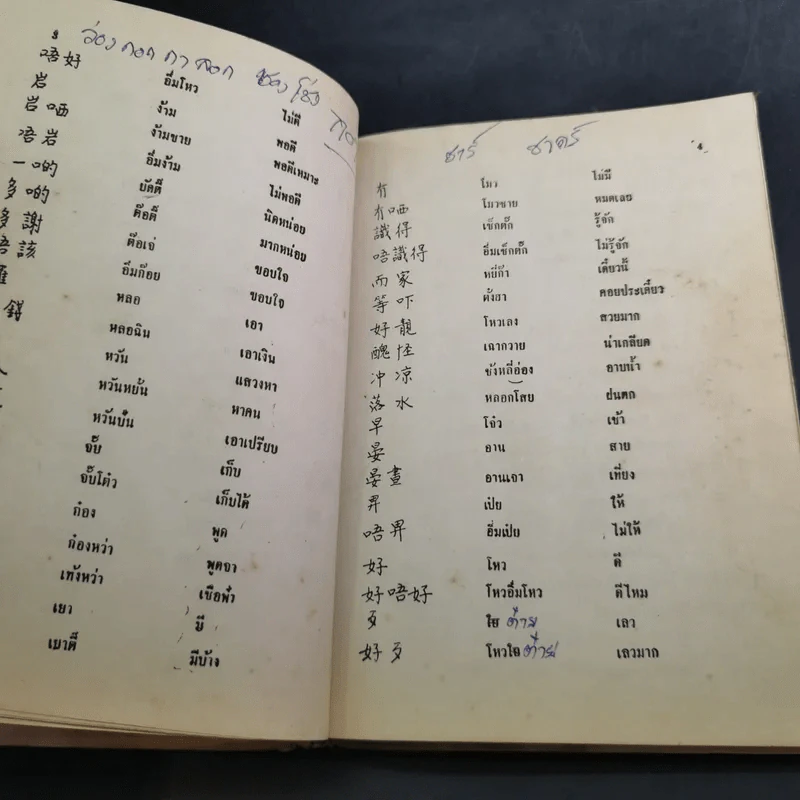 唔好 อึ่มโหว ไม่ดี
岩 ง้าม พอดี
岩哂 ง้ามซาย พอดีเหมาะ
唔岩 อึ่มง้าม ไม่พอดี
一啲 ยัดตี๊ นิดหน่อย
多啲 ต๊อตี๊ มากหน่อย
多謝 ต๊อเจ่ ขอบใจ
唔該 อึ่มก๊อย ขอบใจ
หลอ เอา
หลอฉิน เอาเงิน
หวัน แสวงหา
หวันหยั่น หาคน
หวันบั๋น เอาเปรียบ
จั๊บ เก็บ
จั๊บโต๋ว เก็บได้
ก๋อง พูด
ก๋องหว่า พูดจา
เท้งหว่า เชื่อฟัง
เยา มี
เยาตี๊ มีบ้าง
冇 โมว ไม่มี
冇哂 โมวซาย หมดเลย
識得 เซ็กตั๊ก รู้จัก
唔識得 อึ่มเซ็กตั๊ก ไม่รู้จัก
而家 หยี่ก๊า เดี๋ยวนี้
等吓 ตั๋งฮา คอยประเดี๋ยว
好靚 โหวเลง สวยมาก
醜怪 เฉากวาย น่าเกลียด
冲凉 ชังหลี่อ่อง อาบน้ำ
落水 หลอกโสย ฝนตก
早 โจ๋ว เช้า
晏 อาน สาย
晏晝 อานเจา เที่ยง
畀 เปย ให้
唔畀 อึ่มเปย ไม่ให้
好 โหว ดี
好唔好 โหวอึ่มโหว ดีไหม
歹 ใย ต๋าย เลว
好歹 โหวใย ต๋าย เลวมาก